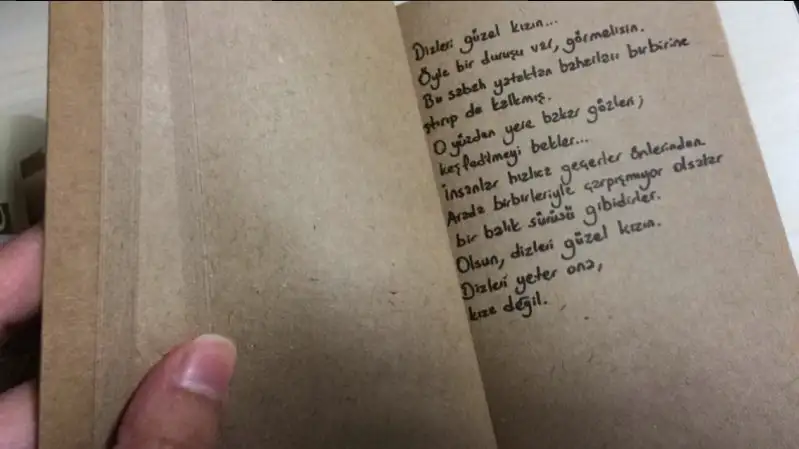 Dizleri güzel kızın...
Öyle bir duruşu var, görmelisin.
Bu sabah yataktan baharları birbirine
ştırıp da kalkmış.
O yüzden yere bakar gözleri;
keşfedilmeyi bekler...
İnsanlar hızlıca geçerler önlerinden
Arada birbirleriyle çarpışmıyor olsalar
bir balık sürüsü gibidirler.
Olsun, dizleri güzel kızın.
Dizleri yeter ona,
kıza değil.